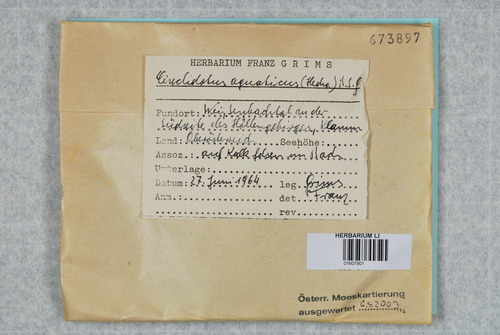 673897
HERBARIUM FRANZ GRIMS
Cinclidotus aquaticus (Hedw.) B.S.G
Fundort: Weißenbachtal an der
Südseite des Höllengebirges,
Land: Oberösterreich Seehöhe:
Assoz.: auf Kalkfelsen im Bach
Unterlage:
Datum: 27. Juni 1964 leg. Grims
Anm.: det. Franz
rev.
HERBARIUM LI
01607901
Österr. Mooskartierung
ausgewertet G.S.2003